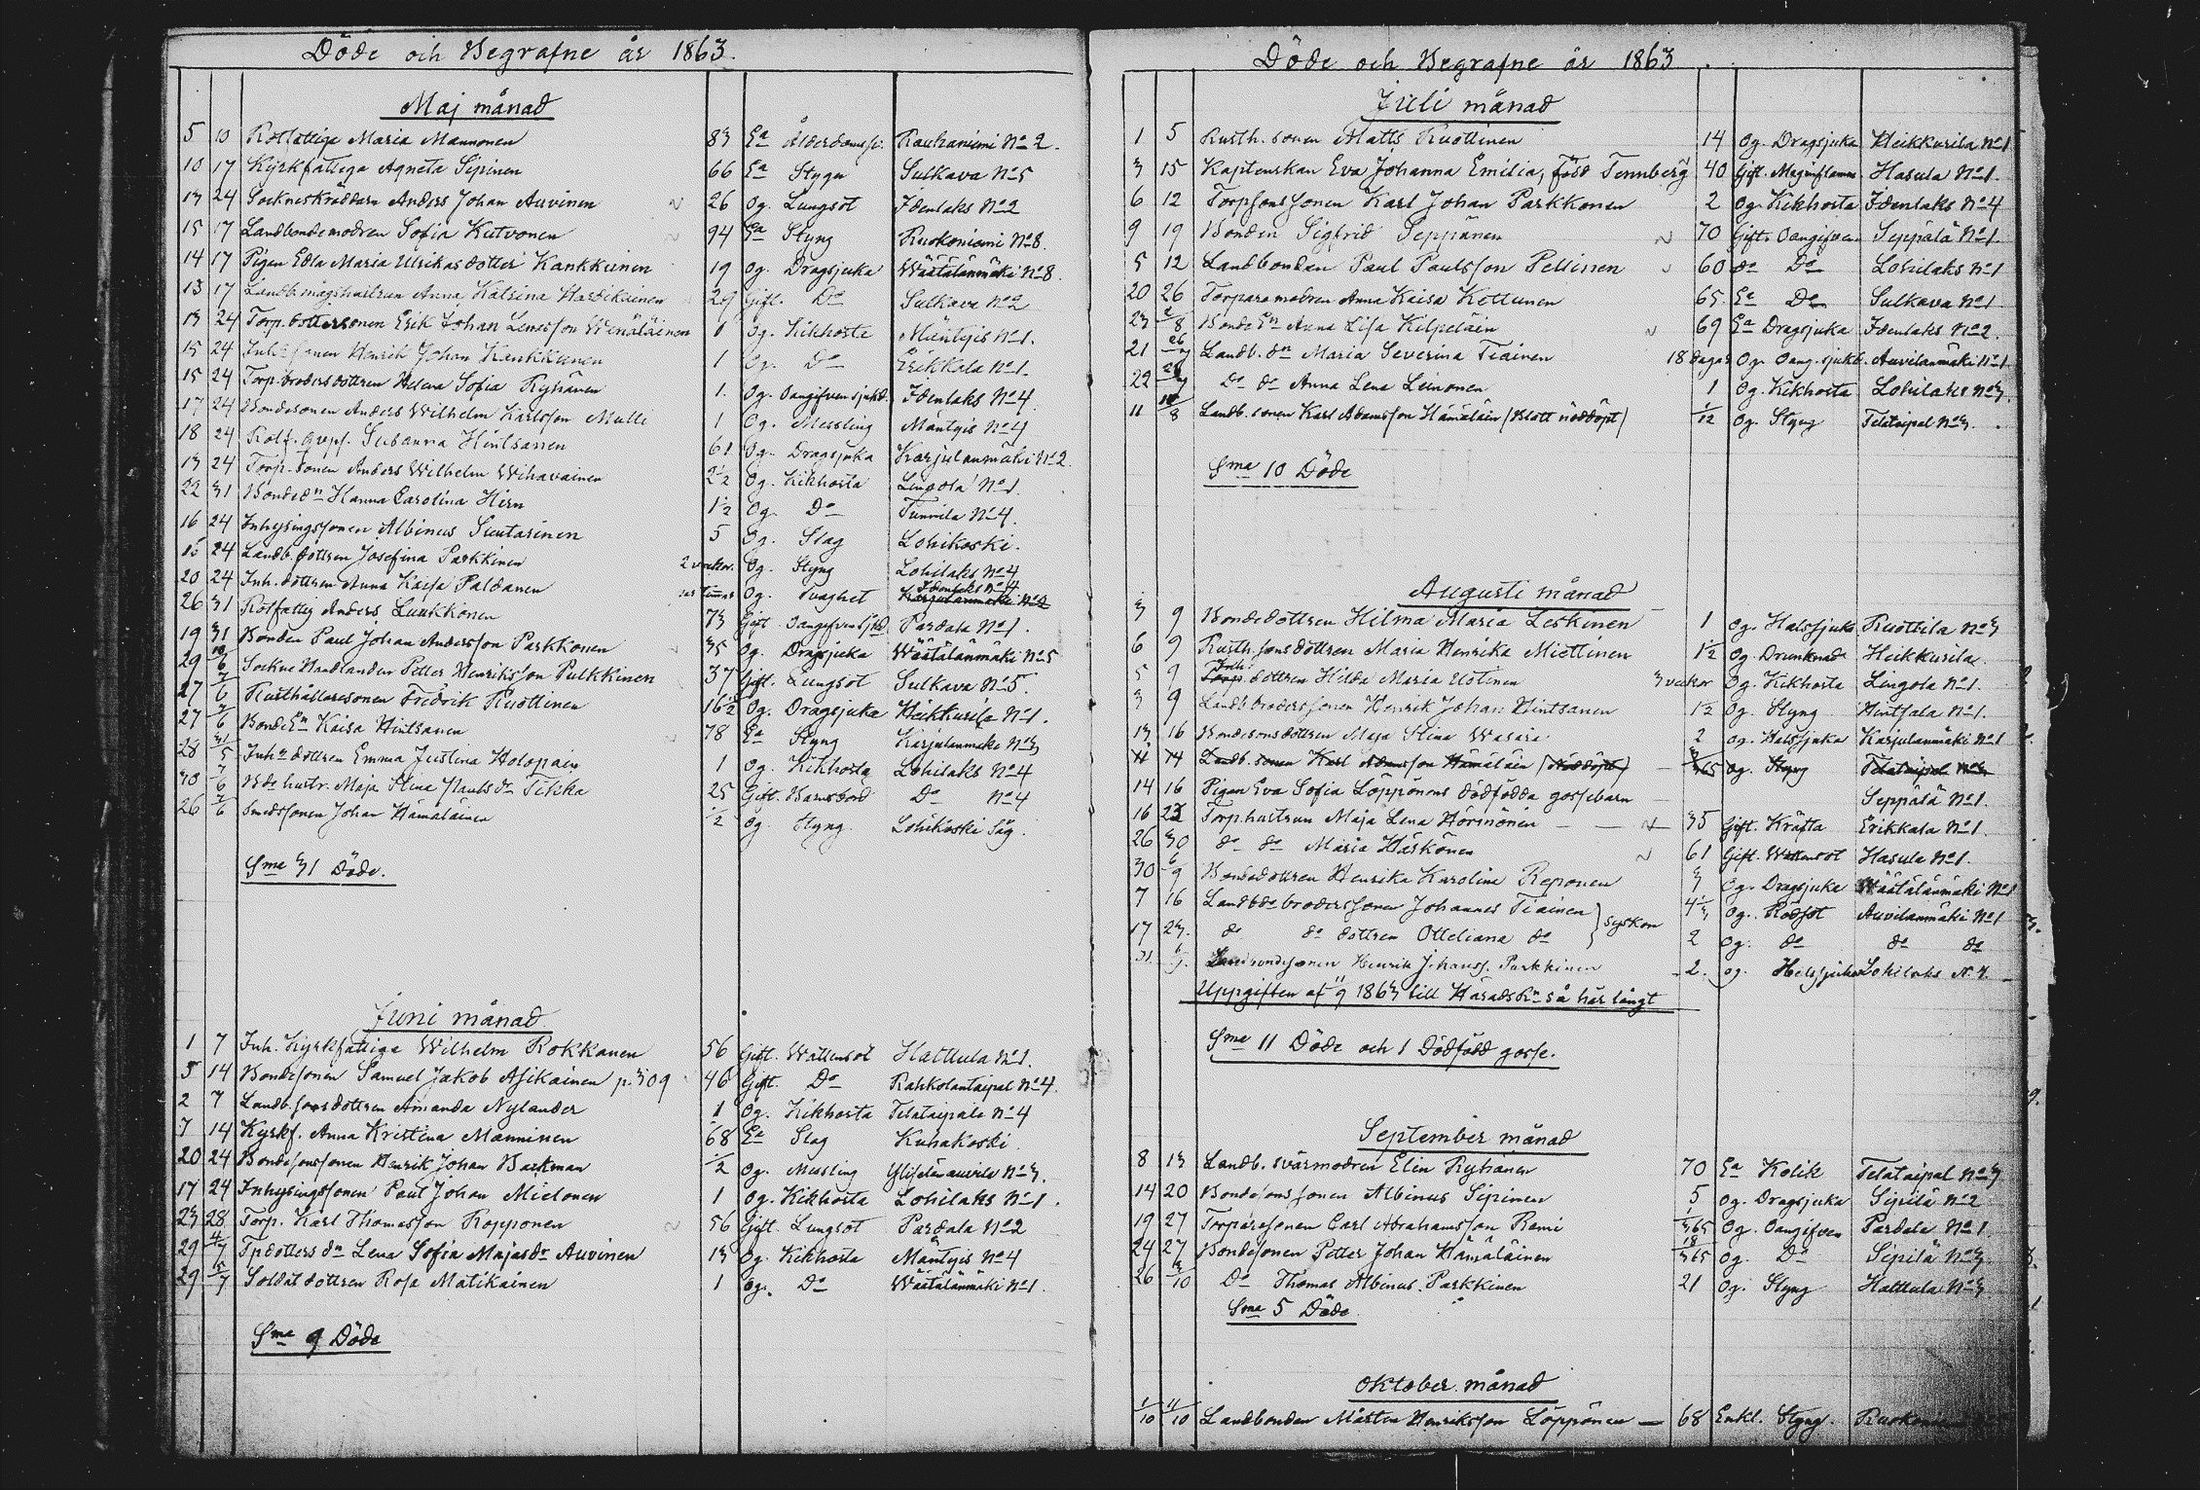 Döde och Begrafne år 1863.
Maj månad
5 10 Rotfattige Maria Mannonen 83 Ea Ålderdomssv. Rauhaniemi No 2.
10 17 Kyrkfattiga Agneta Sipinen 66 Ea Styng Sulkava No 5
13 24 Sockneskräddarn Anders Johan Auvinen 26 Og. Lungsot Idenlaks No 2
15 17 Landbondemodren Sofia Kutvonen 94 Ea Styng Ruokoniemi No 8.
14 17 Pigan Edla Maria Ulrikasdotter Kankkunen 19 Og. Dragsjuka Wäätälänmäki No 8.
13 17 Landb. mågshustrun Anna Katrina Hartikainen 29 Gift. Do Sulkava No 2
13 24 Torp. dottersonen Erik Johan Lenasson Wenäläinen 1 Og. Kikhosta Mäntyis No 1.
15 24 Inhs sonen Henrik Johan Kankkunen 1 Og. Do Erikkala No 1.
15 24 Torp. brorsdottren Helena Sofia Ryhänen 1. Og. Oangifven sjukd. Idenlaks No 4
17 24 Bondesonen Anders Wilhelm Karlsson Mulli 1 Og. Messling Mäntyis No 4
18 24 Rotf. Susanna Hintsanen 61 Og. Dragsjuka Karjulanmäki No 2.
13 24 Torp. sonen Anders Wilhelm Wihavainen 2 1/2 Og. Kikhosta Lingola No 1.
22 31 Bonded:n Hanna Carolina Hirn 1 1/2 Og. Do Tunnila No 4.
16 24 Inhysingssonen Albinus Suutarinen 5 Og. Slag Lohikoski.
15 24 Landb. dottren Josefina Parkkinen 2 veckor. Og. Styng Lohilaks No 4
20 24 Inh. dottren Anna Kaisa Paldanen Og. Svaghet Idenlaks No 4 Karjulanmäki No 2
26 31 Rotfattig Anders Luukkonen 73 Gift. Oangifven sjkd. Pardala No 1.
19 31 Bonden Paul Johan Andersson Parkkonen 35 Og. Dragsjuka Wäätälänmäki No 5
29 10/6 Sockne Handlanden Petter Henriksson Pulkkinen 37 Gift. Lungsot Sulkava No 5.
27 7/6 Rusthållaresonen Fredrik Ruottinen 16 1/2 Og. Dragsjuka Heikkurila No 1.
27 7/6 BondeEn Kaisa Hintsanen 78 Ea Styng Karjulanmäki No 3
28 31/5 Inhs dottren Emma Justina Holopain 1 Og. Kikhosta Lohilaks No 4
30 7/6 Bds hustr. Maja Stina Paulsdr Tikka 25 Gift. Barnsbörd Do No 4
26 7/6 Smedssonen Johan Hämäläinen 1/2 Og Styng. Lohikoski Såg.
Sma 31 Döde.
Juni månad
1 7 Inh. Kyrkfattiga Wilhelm Rokkanen 56 Gift. Wattensot Hattula No 1.
5 14 Bondesonen Samuel Jakob Asikainen p. 309 46 Gift. Do Rahkolantaipal No 4.
2 7 Landb. sonsdottren Amanda Nylander 1 Og. Kikhosta Telataipale No 4
7 14 Kyrkf. Anna Kristina Manninen 68 Ea Slag Kuhakoski
20 24 Bondesonssonen Henrik Johan Backman 1/2 Og. Messling No 3.
17 24 Inhysingssonen Paul Johan Mielonen 1 Og. Kikhosta Lohilaks No 1.
23 28 Torp. Karl Thomasson Ropponen 56 Gift. Lungsot Pardala No 2
29 4/7 Tpdotters dn Lena Sofia Majasdr Auvinen 13 Og. Kikhosta Mäntyis No 4
29 5/7 Soldat dottren Rosa Matikainen 1 Og. Do Wäätälänmäki No 1.
Sma 9 Döda
Döde och Begrafne år 1863.
Juli månad
1 5 Rusth. sonen Matts Ruottinen 14 Og. Dragsjuka Heikkurila No 1
3 15 Kaptenskan Eva Johanna Emilia, född Tennberg 40 Gift. Maginflamm Hasula No 1.
6 12 Torpsonssonen Karl Johan Parkkonen 2 Og. Kikhosta Idenlaks No 4
9 19 Bonden Sigfrid Seppänen 70 Gift. Oangifven Seppälä No 1.
5 12 Landbonden Paul Paulsson Pellinen 60 do Do Lohilaks No 1
20 26 Torpare modren Anna Kaisa Kettunen 65 Ea Do Sulkava No 1
23 2/8 BondeEn Anna Lisa Kilpeläin 69 Ea Dragsjuka Idenlaks No 2.
21 26/7 Landb. dn Maria Severina Tiainen 18 dagar Og. Oang. sjukd. Auvilanmäki No 1
22 26/7 Do do Anna Lena Leinonen 1 Og. Kikhosta Lohilaks No 3.
11 /8 Landb. sonen Karl Adamsson Hämäläin (Blott nöddöpt) 1/12 Og. Styng Telataipal No 3.
Sma 10 Döde
Augusti månad
3 9 Bondedottren Hilma Maria Leskinen 1 Og. Halssjuka Ruottila No 3
6 9 Rusth. sonsdottren Maria Henrika Miettinen 1 1/2 Og. Drunknad Heikkurila
5 9 Inh. Torp. dottren Hilda Maria Uotinen 3 veckor Og. Kikhosta Lingola No 1.
3 9 Landb. brorssonen Henrik Johan Hintsanen 1 1/2 Og. Styng Hintsala No 1.
13 16 Bondesonsdottren Maja Stina Wasara 2 Og. Halssjuka Karjulanmäki No 1
11 14 Landb. sonen Karl Adamsson Hämäläin (Nöddöpt) 3/365 Og. Styng Telataipal No 3
14 16 Pigan Eva Sofia Löppönens dödfödda gossebarn Seppälä No 1.
16 23 Torp. hustrun Maja Lena Hörinönen 35 Gift. Kräfta Erikkala No 1.
26 30 do do Maria Häskönen 61 Gift. Wattensot Hasula No 1.
30 6/9 Bondedottren Henrika Karolina Reponen 3 Og. Dragsjuka Wäätälänmäki No 1
7 16 Landbds brodersonen Johannes Tiainen } syskon 4 1/3 Og. Rödsot Auvilanmäki No 1
17 23. do do dottren Otteliana do 2 Og. do do do
31. 6/9. Landbondesonen Henrik Johanss. Parkkinen 2. og. Halssjuka Lohilaks N. 4.
Uppgiften af 11/9 1863 till Häradsk:n så här långt
Sma 11 Döde och 1 Dödfödd gosse.
September månad
8 13 Landb. svärmodren Elin Ryhänen 70 Ea Kolik Telataipal No 3
14 20 Bondesonssonen Albinus Sipinen 5 Og. Dragsjuka Sipilä No 2
19 27 Torparesonen Carl Abrahamsson Rami 1/365 Og. Oangifven Pardala No 1.
24 27 Bondesonen Petter Johan Hämäläinen 18/365 Og. Do Sipilä No 3
26 4/10 Do Thomas Albinus. Parkkinen 21 Og. Styng Hattula No 3
Sma 5 Döde
Oktober månad
1/10 11/10 Landbonden Mårten Henriksson Löppönen — 68 Enkl. Styng.